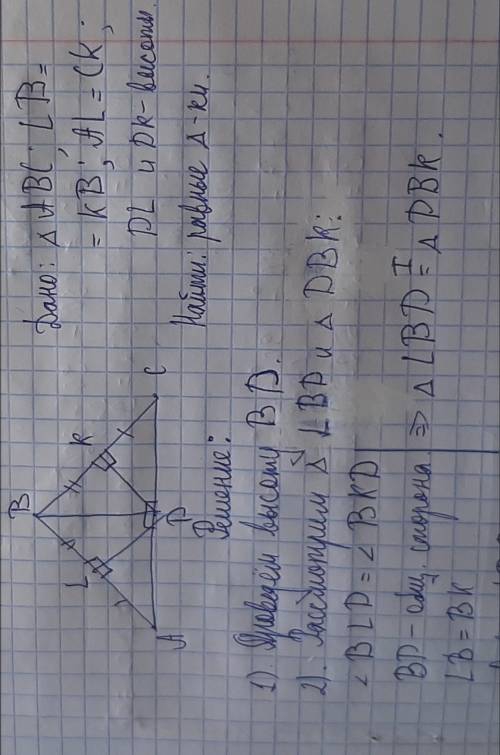 B
L
K
A
D
C
Дано: Δ ABC; LB =
= KB; AL = CK;
DL и DK - высоты.
Найти: равные Δ-ки.
Решение:
1). Проведём высоту BD.
2). Рассмотрим Δ LBD и Δ DBK:
∠BLD = ∠BKD
BD - общ. сторона ⇒ Δ LBD I= Δ DBK.
LB = BK